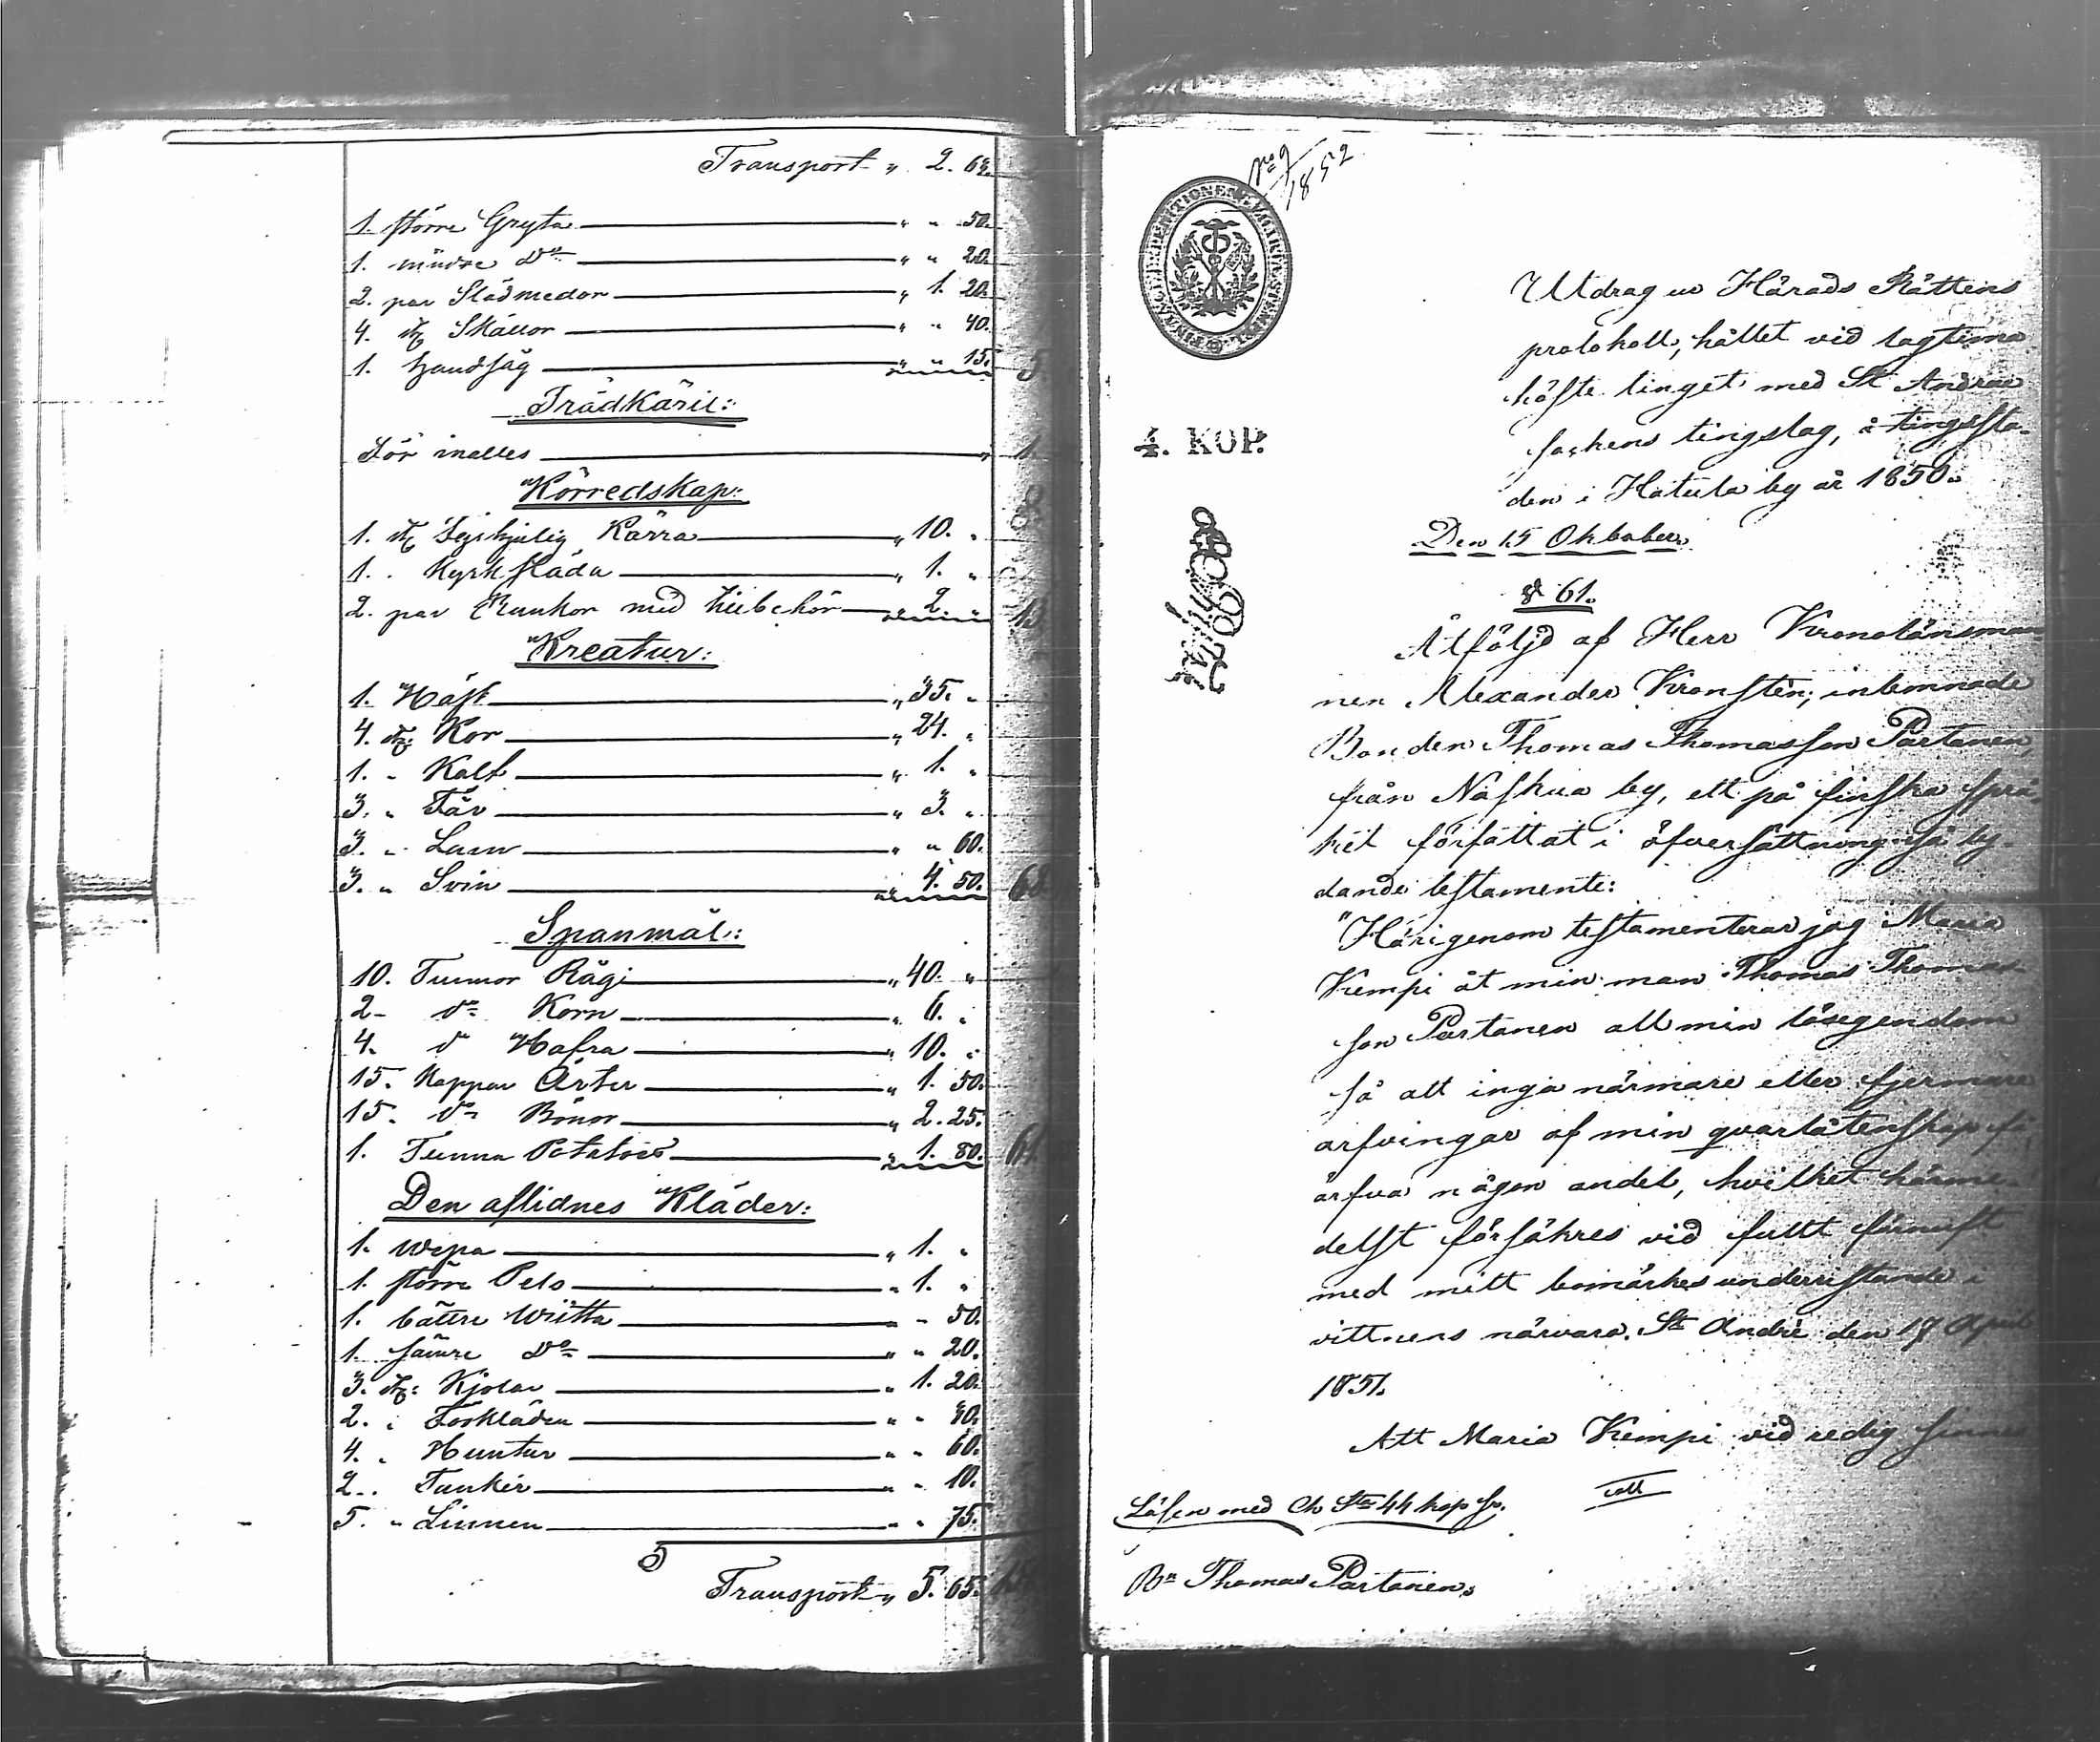 Transport „ 2. 62.
1. större Gryta „ „ 50.
1. mindre d:o „ „ 20.
2. par Slädmedar „ 1. 20.
4. st. Skällor „ „ 40.
1. handsåg „ „ 15. 5
Trädkäril:
För inalles „ 1.
Körredskap:
1. st. Kärra „ 10. „
1. „ Kyrksläda „ 1. „
2. par Runkor med tillbehör „ 2. „ 13
Kreatur:
1. Häst „ 35. „
4. st: Kor „ 24. „
1. „ Kalf „ 1. „
3. „ Får „ 3. „
3. „ Lam „ „ 60.
3. „ Svin „ 4. 50. 68
Spanmål:
10. Tunnor Råg „ 40. „
2- d:o Korn „ 6. „
4. d:o Hafra „ 10. „
15. Kappar Ärter „ 1. 50.
15. d:o Bönor „ 2. 25.
1. Tunna Potatoes „ 1. 80. 61
Den aflidnes Kläder:
1. Wepa „ 1. „
1. större Pels „ 1. „
1. bättre Wiitta „ „ 50.
1. sämre d:o „ „ 20.
3. st: Kjolar „ 1. 20.
2. „ Förkläden „ „
4. „ Huntur „ „ 60.
2. „ „ „ 10.
5. „ Linnen „ „ 75.
Transport „ 5. 65.
No 9
1852
4. KOP.
Utdrag ur Härads Rättens
protokoll, hållet vid lagtima
höste tinget med St Andreæ
sockens tingslag, å tingssta-
den i Hatula by år 1850.
Den 15 Oktober.
§ 61.
Åtföljd af Herr Kronolänsman
nen Alexander Kronstén, inlemnade
Bonden Thomas Thomasson Partanen,
från Naskua by, ett på finska språ-
ket författat i öfversättning så ly-
dande testamente:
"Härigenom testamenterar jag Maria
Kempi åt min man Thomas Thomas-
son Partanen all min lösegendom
så att inga närmare eller fjermare
arfvingar af min qvarlåtenskap få
ärfva någon andel, hvilket härme-
delst försäkres vid fullt förnuft
med mitt bomärkes understände i
vittnens närvara. St André den 17 April
1851.
Att Maria Kempi vid redig sinne
Lösen med 44 kop Sr.
Bn Thomas Partanen.